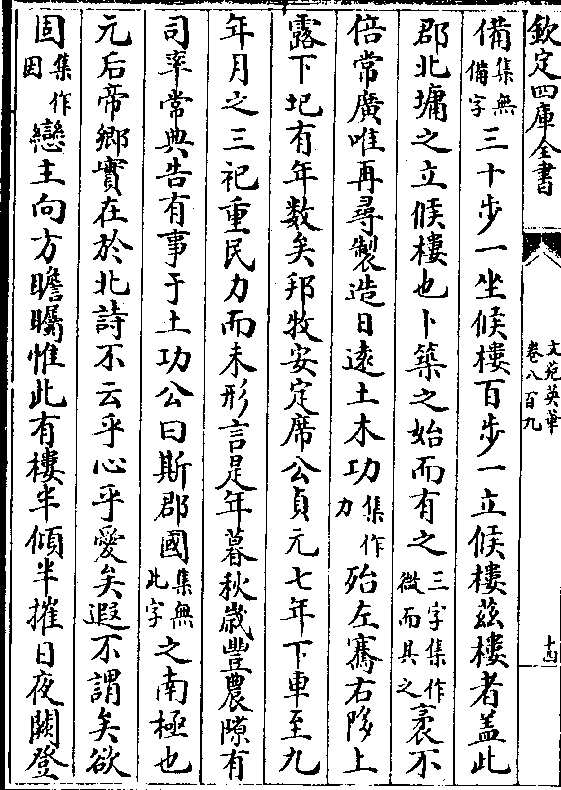 欽定四庫全書
文苑英華
卷八百九
十四
備集無備字三十步一坐候樓百步一立候樓茲樓者盖此
郡北墉之立候樓也卜築之始而有之三字集作微而具之袤不
倍常廣唯再尋製造日遠土木功集作力殆左騫右陊上
露下圮有年數矣邦牧安定席公貞元七年下車至九
年月之三祀重民力而未形言是年暮秋歲豐農隙有
司率常典告有事于土功公曰斯郡國集無此字之南極也
元后帝鄉實在於北詩不云乎心乎愛矣遐不謂矣欲
固集作因戀主向方瞻矚惟此有樓半傾半摧日夜闕登